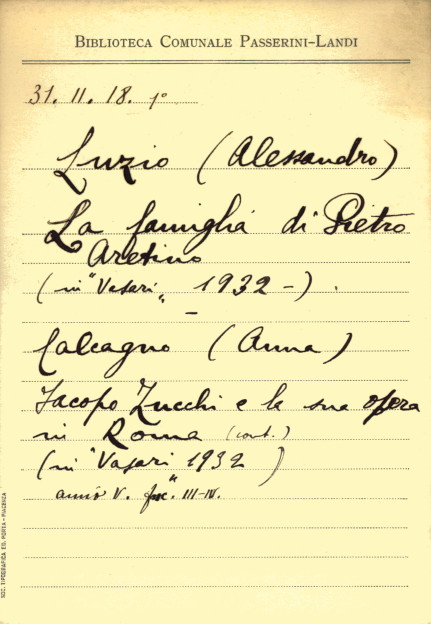 BIBLIOTECA COMUNALE PASSERINI-LANDI
31. 11. 18. 1°
Luzio (Alessandro)
La famiglia di Pietro
Aretino
(in "Vasari" 1932 -)
-
Calcagno (Anna)
Jacopo Zucchi e la sua opera
in Roma (cont.)
(in "Vasari 1932")
anno V. fasc. III-IV.
SOC. TIPOGRAFICA ED. PORTA - PIACENZA